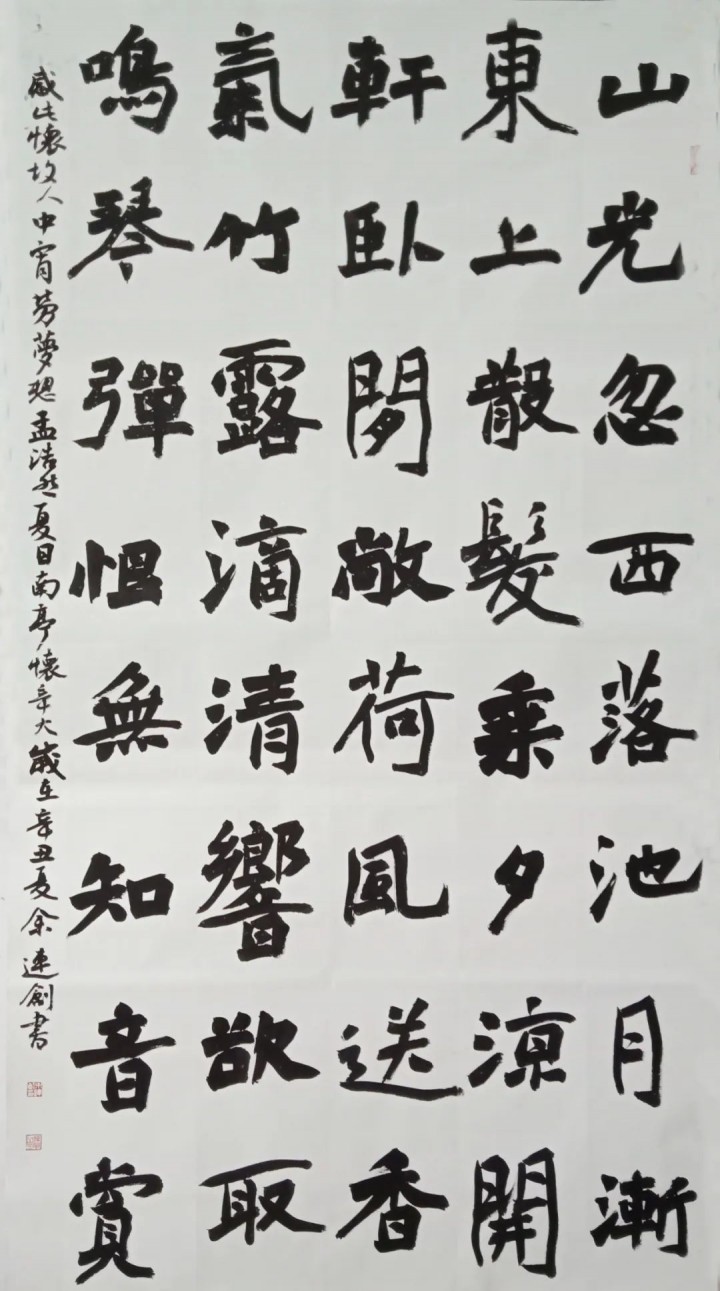 山光忽西落池月漸
東上散髮乘夕涼開
軒臥閒敞荷風送香
氣竹露滴清響欲取
鳴琴彈恨無知音賞
感此懷故人中宵勞夢想孟浩然夏日南亭懷辛大歲在辛丑夏余連創書